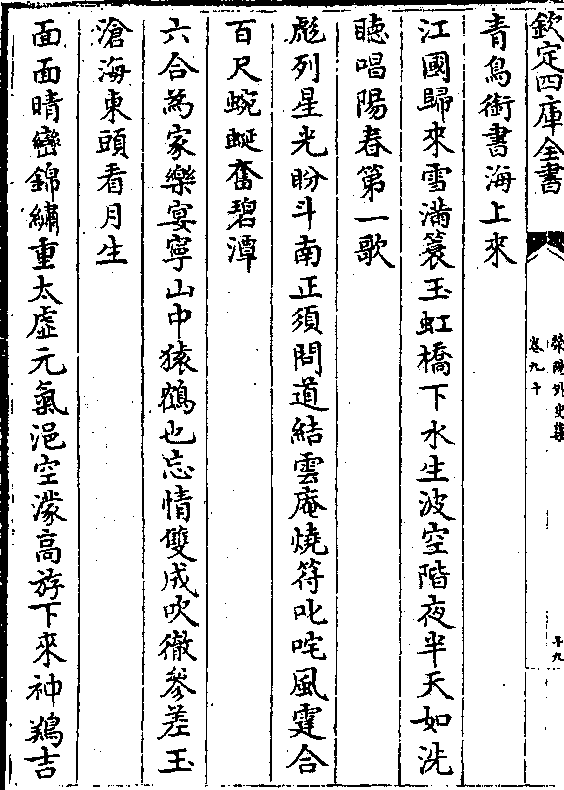 欽定四庫全書
卷九下
十九
青鳥銜書海上來
江國歸來雪滿簑玉虹橋下水生波空階夜半天如洗
聽唱陽春第一歌
彪列星光盼斗南正須問道結雲庵燒符叱咤風霆合
百尺蜿蜒奮碧潭
六合為家樂宴寧山中猿鶴也忘情雙成吹徹參差玉
滄海東頭看月生
面面晴巒錦繡重太虛元氣浥空濛高游下來神鷄吉